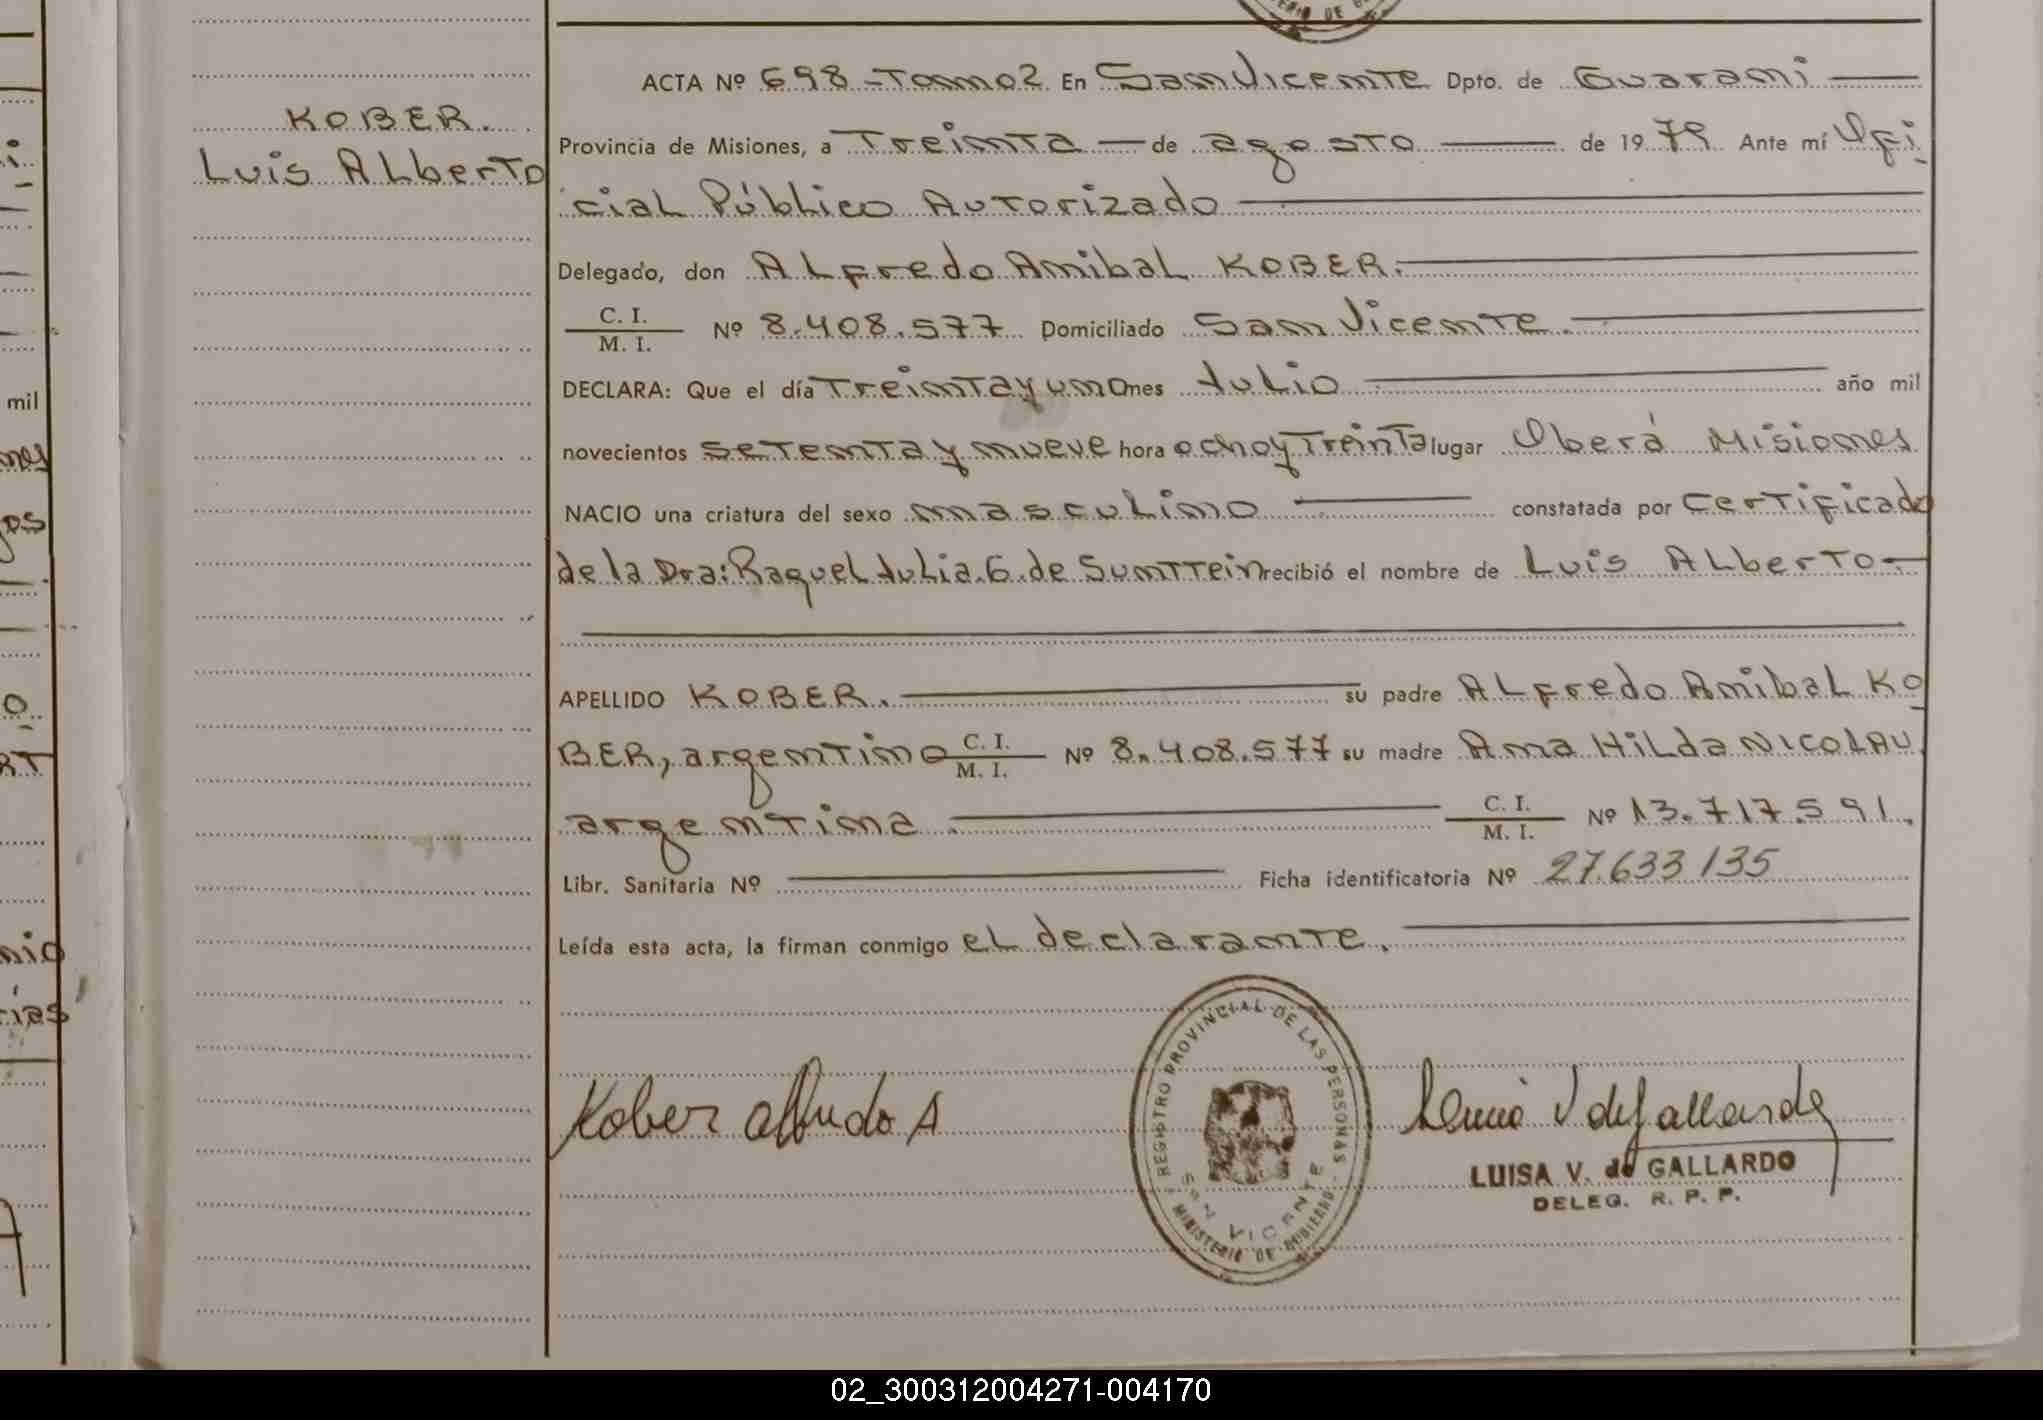 KOBER.
Luis Alberto
ACTA Nº 698 - Tomo 2 En San Vicente Dpto. de Guaraní
Provincia de Misiones, a Treinta de agosto de 1979 Ante mí Ofi
cial Público Autorizado
Delegado, don Alfredo Anibal KOBER.
C. I.
M. I. Nº 8.408.577 Domiciliado San Vicente.
DECLARA: Que el día Treinta y uno mes Julio año mil
novecientos setenta y nueve hora ocho y Treinta lugar Oberá Misiones
NACIO una criatura del sexo masculino constatada por certificado
de la Dra: Raquel Julia G. de Sunttein recibió el nombre de Luis Alberto
APELLIDO KOBER. su padre Alfredo Anibal KO
BER, argentino C. I.
M. I. Nº 8.408.577 su madre Ana Hilda NICOLAU,
argentina C. I.
M. I. Nº 13.717.591.
Libr. Sanitaria Nº Ficha identificatoria Nº 27.633 135
Leída esta acta, la firman conmigo el declarante.
Kober Alfredo A
REGISTRO PROVINCIAL DE LAS PERSONAS
SAN VICENTE
MINISTERIO DE GOBIERNO
Luisa V de Gallardo
LUISA V. de GALLARDO
DELEG. R. P. P.
mil
nes
gos
o
RT
nio
rias
02_300312004271-004170